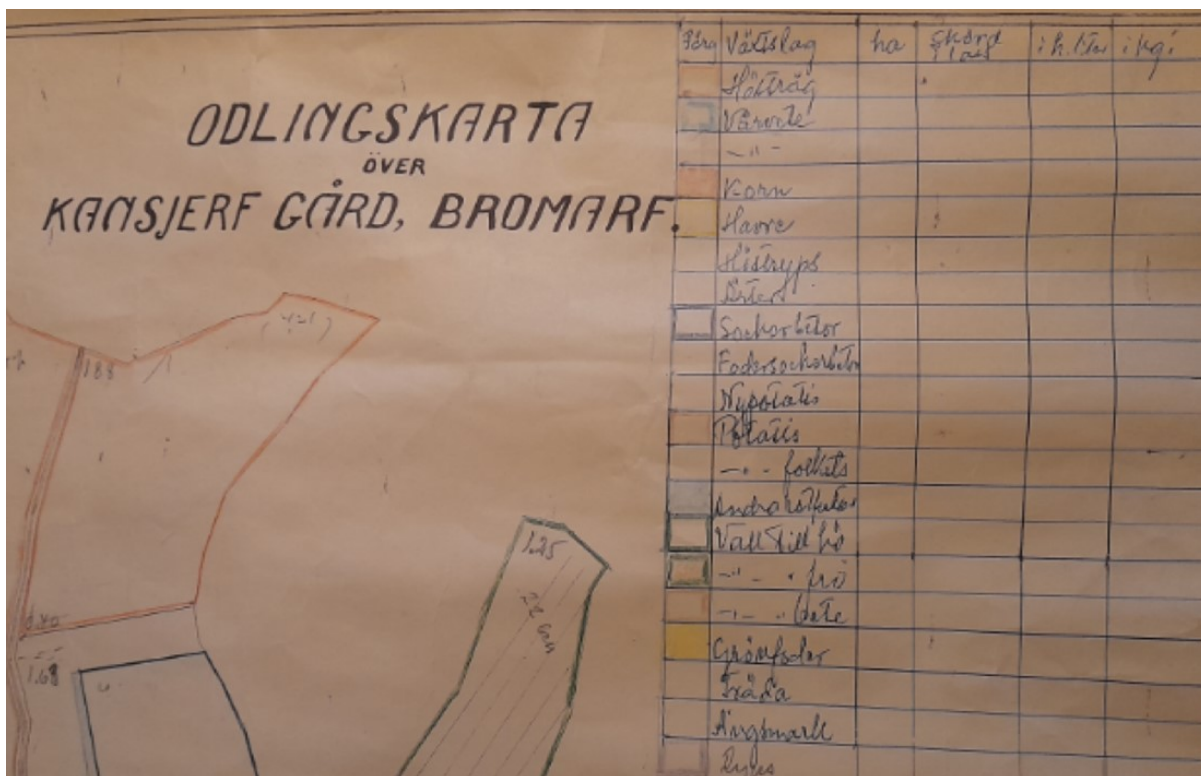 ODLINGSKARTA
ÖVER
KANSJERF GÅRD, BROMARF.
Färg Växtslag ha Skörd i kg.
Höstråg
Vårvete
-"-
Korn
Havre
Höstryps
Ärter
Sockerbetor
Fodersockerbetor
Nypotatis
Potatis
-"- folkets
Andra rotfrukter
Vall till hö
-"- " frö
-"- " bete
Grönfoder
Träda
Ängsmark
Ryps
188
1.25
22 
1.68